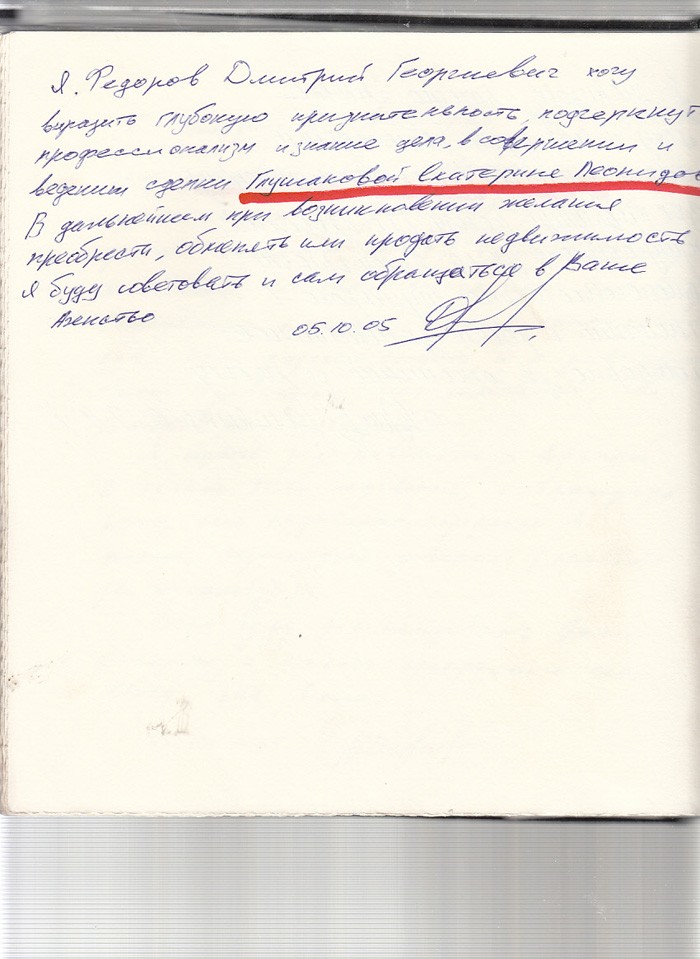 Я, Федоров Дмитрий Георгиевич хочу
выразить глубокую признательность, подчеркнут
профессионализм и знание дела, в совершении и
ведении сделки Глушаковой Екатерине Леонидов
В дальнейшем при возникновении желания
преобрести, обменять или продать недвижимость
я буду советовать и сам обращаться в Ваше
Агенство 05.10.05